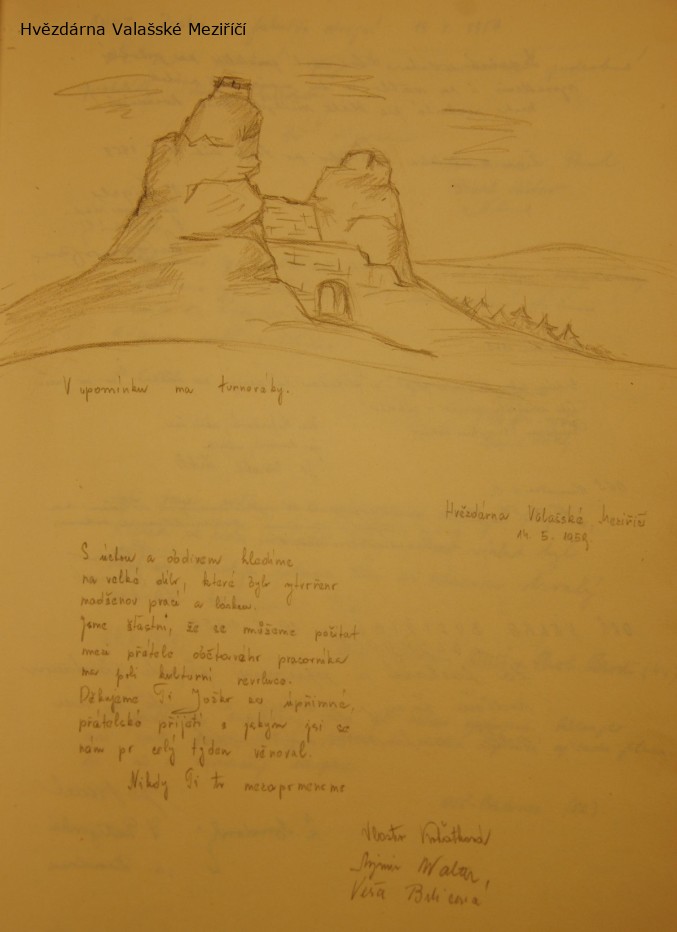 Hvězdárna Valašské Meziříčí
V upomínku na turnováky.
Hvězdárna Valašské Meziříčí
14. 5. 1959
S úctou a obdivem hledíme
na velké dílo, které bylo vytvořeno
nadšenou prací a láskou.
Jsme šťastni, že se můžeme počítat
mezi přátele obětavého pracovníka
na poli kulturní revoluce.
Děkujeme Ti Joško za úpřimné,
přátelské přijetí s jakým jsi se
nám po celý týden věnoval.
Nikdy Ti to nezapomeneme
Walter,
Věra